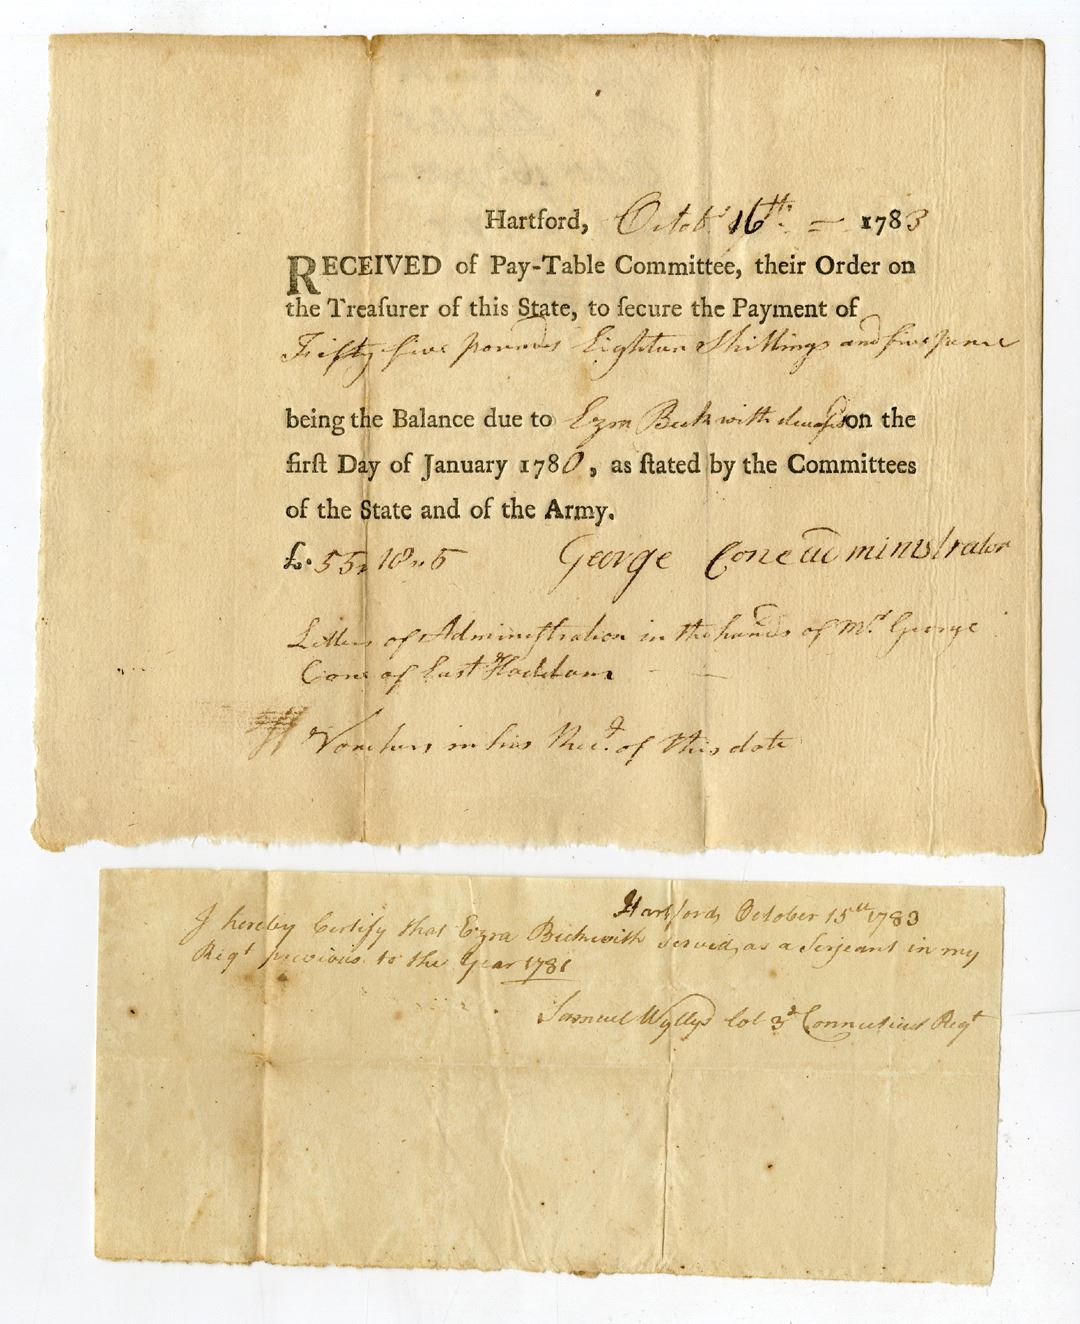 Hartford, Octobr 16th. = 1783
RECEIVED of Pay-Table Committee, their Order on
the Treaſurer of this State, to ſecure the Payment of
Fifty five pounds Eighteen Shillings and five pence
being the Balance due to Ezra Beckwith deceasd on the
firſt Day of January 1780, as ſtated by the Committees
of the State and of the Army.
£. 55,, 18,, 5 George Cone administrator
Letters of Adminiſtration in the hands of Mr. George
Cone of East Haddam
Vouchers in his Rect. of this date
Hartford, October 15th 1783
I hereby Certify that Ezra Beckwith served, as a Serjeant in my
Regt previous to the Year 1781
Samuel Wyllys Col 3d Connecticut Regt